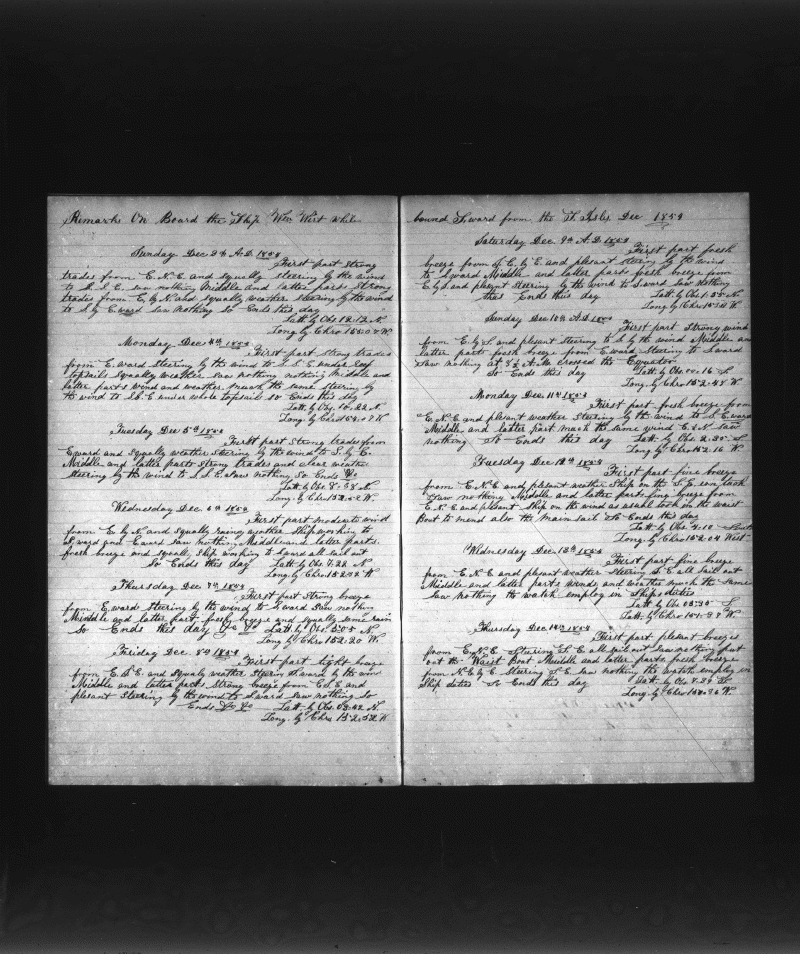 Remarks On Board the Ship Wm Wirt while
Sunday Dec 3d A.D. 1854
First part Strong
trades from E. N. E and squally steering by the wind
to S. S. E. saw nothing Middle and latter parts Strong
trades from E. by N. and squally weather steering by the wind
to S by Eward Saw nothing So Ends this day
Latt. by Obs 12.12 N
Long. by Chro
Monday Dec 4th
First part Strong trades
from E.ward Steering by the wind to S. S. E under
topsails Squally weather saw nothing Middle and
latter parts wind and weather much the same steering by
the wind to S.b.E under whole topsail so Ends this day
Latt. by Obs. 10.22 N
Long. by Chro W
Tuesday Dec 5th
First part Strong trades from
Eward and Squally weather Steering by the wind to S. by E.
Middle and latter parts Strong trades and clear weather
Steering by the wind to S. S. E. Saw nothing So Ends
Latt. by Obs 8.38 N
Long. by Chro W.
Wednesday Dec. 6th
First part moderate wind
from E by N and squally rainy weather Ship working to
S ward gone Eward Saw nothing Middle and latter parts
fresh breeze and squally Ship working to Sward all sail out
So Ends this day Latt. by Obs 7.22 N
Long. by Chro W
Thursday Dec 7th
First part Strong breeze
from E. ward Steering by the wind to S ward Saw nothin
Middle and latter part fresh breeze and squally some rain
So Ends this day Latt. by Obs. 5.05 N.
Long by Chro 152.20 W
Friday Dec. 8th
First part light breeze
from E. S. E. and squaly weather Steerin S.ward by the win
Middle and latter parts Strong breeze from E S E and
pleasant Steering by the wind to Sward Saw nothing So
Ends Latt. by Obs 03.42 N
Long. by Chro 152.52 W
bound S.ward from the S. Isles Dec
Saturday Dec. 9th A.D.
First part fresh
breeze from E. by E and plesant steering by the wind
to S.ward Middle and latter parts fresh breeze from
E by S and plesent Steering by the wind to S.ward Saw nothing
thus Ends this day Latt. by Obs. 1.55 N
Long by Chro W.
Sunday Dec 10th A.D.
First part Strong wind
from E. by S and plesant Steering to S by the wind Middle and
latter parts fresh breeze from Eward Steering to S.ward
Saw nothing at A.M. Crossed the Equator
So Ends this day Latt. by Obs 00.16 S
Long. by Chro 152.48 W
Monday Dec. 11th
First part fresh breeze from
E. N. E and plesant weather Steering by the wind to S. Eward
Middle, and latter part much the same wind E.N Saw
nothing So Ends this day Latt. by Obs. 2.25 S
Long by Chro 152.16 W.
Tuesday Dec 12th
First part fine breeze
from E. N. E and plesant weather Ship on the S. E. on tack
Saw nothing Middle and latter parts fine breeze from
E. N. E and plesant Ship on the wind as usual took on the waist
Boat to mend also the mainsail So Ends this day
Latt. by Obs 4.10 South
Long. by Chro 152.04 West
Wednesday Dec 13th
First part fine breeze
from E. N. E and plesant weather Steering S. E all sail out
Middle and latter parts winds and weather much the same
Saw nothing the watch employ in Ships duties
Latt. by Obs 05.35 S
Latt. by Chro W.
Thursday Dec 14th
First part plesent breezes
from E. N. E Stearing S. E all sail out Saw nothing put
out the Waist Boat Middle and latter parts fresh breeze
from N. E by E Steering S E saw nothing the watch employ in
Ship duties So Ends this day Latt. by Obs 7.30 S
Long by Chro W.